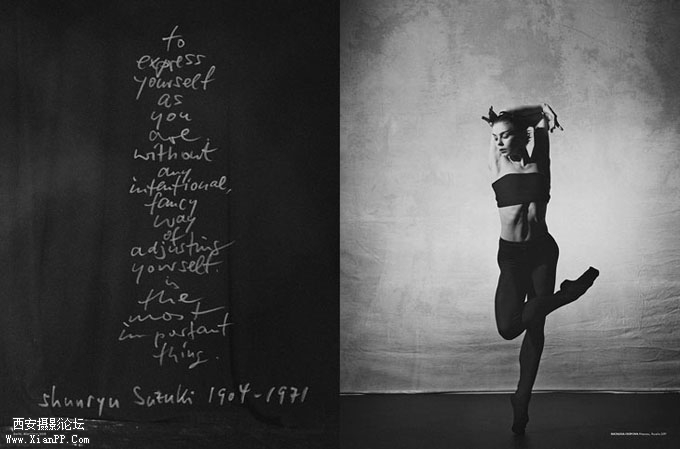 to
express
yourself
as
you
are.
without
any
intentional,
fancy
way
of
adjusting
yourself.
is
the
most
important
thing.
shunryu Suzuki 1904-1971
西安摄影论坛
Www.XianPP.Com